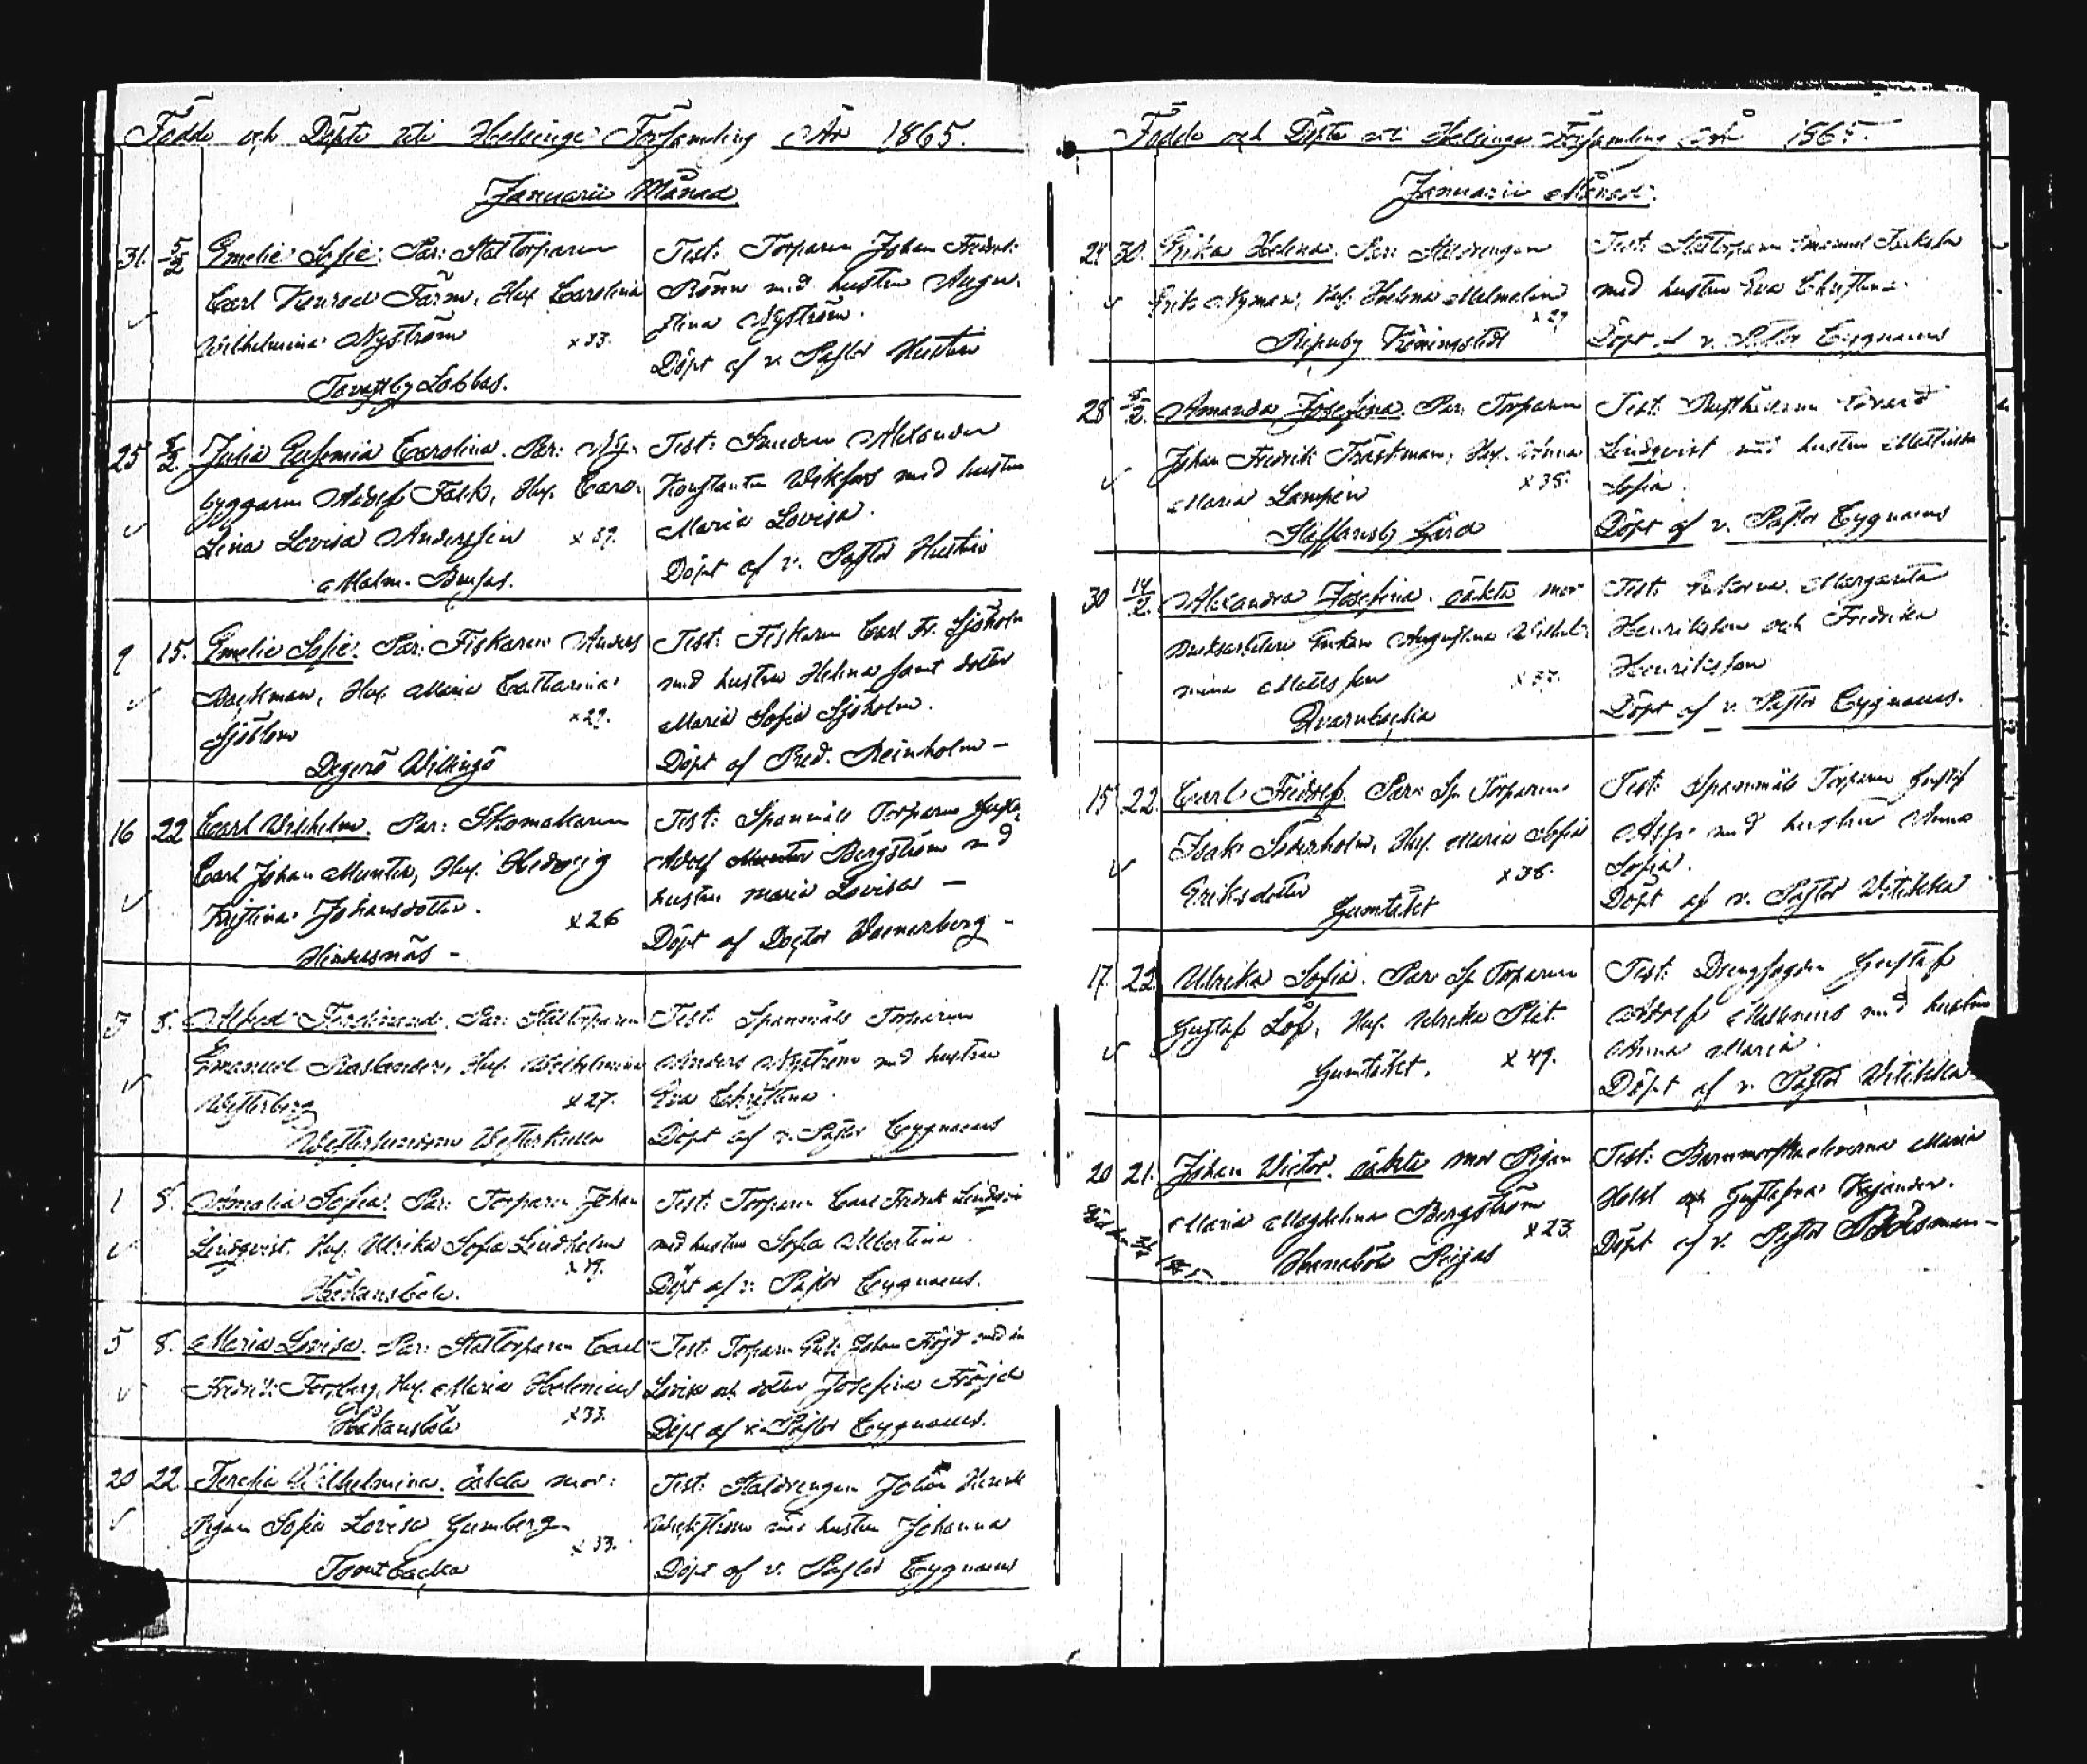 Födde och Döpte uti Helsinge Församling År 1865.
Januarii Månad
31. 5/2 Emelie Sofie. Par: Stattorparen
Carl Konrad Färm, Hus. Carolina
Wilhelmina Nyström x 33.
Tavastby Lobbas.
Test: Torparen Johan Fredrik
Rönn med hustru Augu-
stina Nyström.
Döpt af v. Pastor Hustin
25 8/2. Julia Eufemia Carolina. Par: Ny-
byggaren Adolf Falk, Hus. Caro-
lina Lovisa Andersin x 37.
Malm. Brusas.
Test: Smeden Alexander
Konstantin Wikfors med hustru
Maria Lovisa.
Döpt af v. Pastor Hustin
9 15. Emelie Sofie. Par: Fiskaren Anders
Backman, Hus. Maria Catharina
Sjöblom x 29.
Degerö Willingö
Test: Fiskaren Carl Fr. Sjöholm
med hustru Helena samt dotter
Maria Sofia Sjöholm.
Döpt af Pred. Reinholm –
16 22 Carl Wilhelm. Par: Skomakaren
Carl Johan Munter, Hus. Hedvig
Kristina Johansdotter. x 26
Hindersnäs –
Test: Spannmåls Torparen Gustaf
Adolf Munter Bergström med
hustru Maria Lovisa –
Döpt af Doctor Wænerberg –
3 5. Alfred Ferdinand. Par: Stattorparen
Emanuel Roslander, Hus. Wilhelmina
Westerberg x 27.
Westerkulla
Test: Spannmåls Torparen
Anders Nyström med hustru
Eva Christina.
Döpt af v. Pastor Cygnaeus
1 8. Amalia Sofia. Par: Torparen Johan
Lindqvist, Hus. Ulrika Sofia Lindholm
x 39.
Håkansböle.
Test: Torparen Carl Fredrik Lindqvist
med hustru Sofia Albertina.
Döpt af v. Pastor Cygnaeus.
5 8. Maria Lovisa. Par: Stattorparen Carl
Fredrik Forsberg, Hus. Maria Helenius
Håkansböle x 33.
Test: Torparen Erik Johan Fröjd med
Lovisa och dotter Josefina Fröjd
Döpt af v. Pastor Cygnaeus.
20 22 Teresia Wilhelmina. oäkta mor:
Pigan Sofia Lovisa Gumberg
x 33.
Tomtbacka
Test: Staldrengen Johan Henrik
med hustru Johanna
Döpt af v. Pastor Cygnaeus
Födde och Döpte uti Helsinge Församling År 1865.
Januarii Månad.
28 30. Erika Helena. Par: Staldrengen
Erik Nyman, Hus. Helena Malmelin
x 29
Ripuby Königstedt
Test: Stattorparen Emanuel
med hustru Eva Christina.
Döpt af v. Pastor Cygnaeus
28 5/2. Amanda Josefina. Par: Torparen
Johan Fredrik Träskman, Hus. Anna
Maria Lampén x 38.
Staffansby Gård
Test: Rusthållaren Edvard
Lindqvist med hustru Mathilda
Sofia.
Döpt af v. Pastor Cygnaeus
30 14/2. Alexandra Josefina. oäkta mor
Bruksarbetare Enkan Augustina Wilhel-
mina Matsson x 37.
Qvarnbacka
Test: Enkorna Margareta
Henriksson och Fredrika
Henriksson
Döpt af v. Pastor Cygnaeus.
15 22. Carl Fridolf. Par: Sp Torparen
Isak Söderholm, Hus. Maria Sofia
Eriksdotter x 38.
Gumtäkt
Test: Spannmåls Torparen Gustaf
Asp med hustru Anna
Sofia.
Döpt af v. Pastor Witikka
17. 22 Ulrika Sofia. Par: Sp Torparen
Gustaf Löf, Hus. Ulrika Plit.
Gumtäkt. x 49.
Test: Drengfogden Gustaf
Adolf Hellenius med hustru
Anna Maria.
Döpt af v. Pastor Witikka
20 21. Johan Victor. oäkta mor Pigan
Maria Maghelina Bergström
x 23
Henrabölé Peijas
Test: Barnmorskeeleverna Maria
Holst och Gustafva Kajander.
Döpt af v. Pastor Boisman –